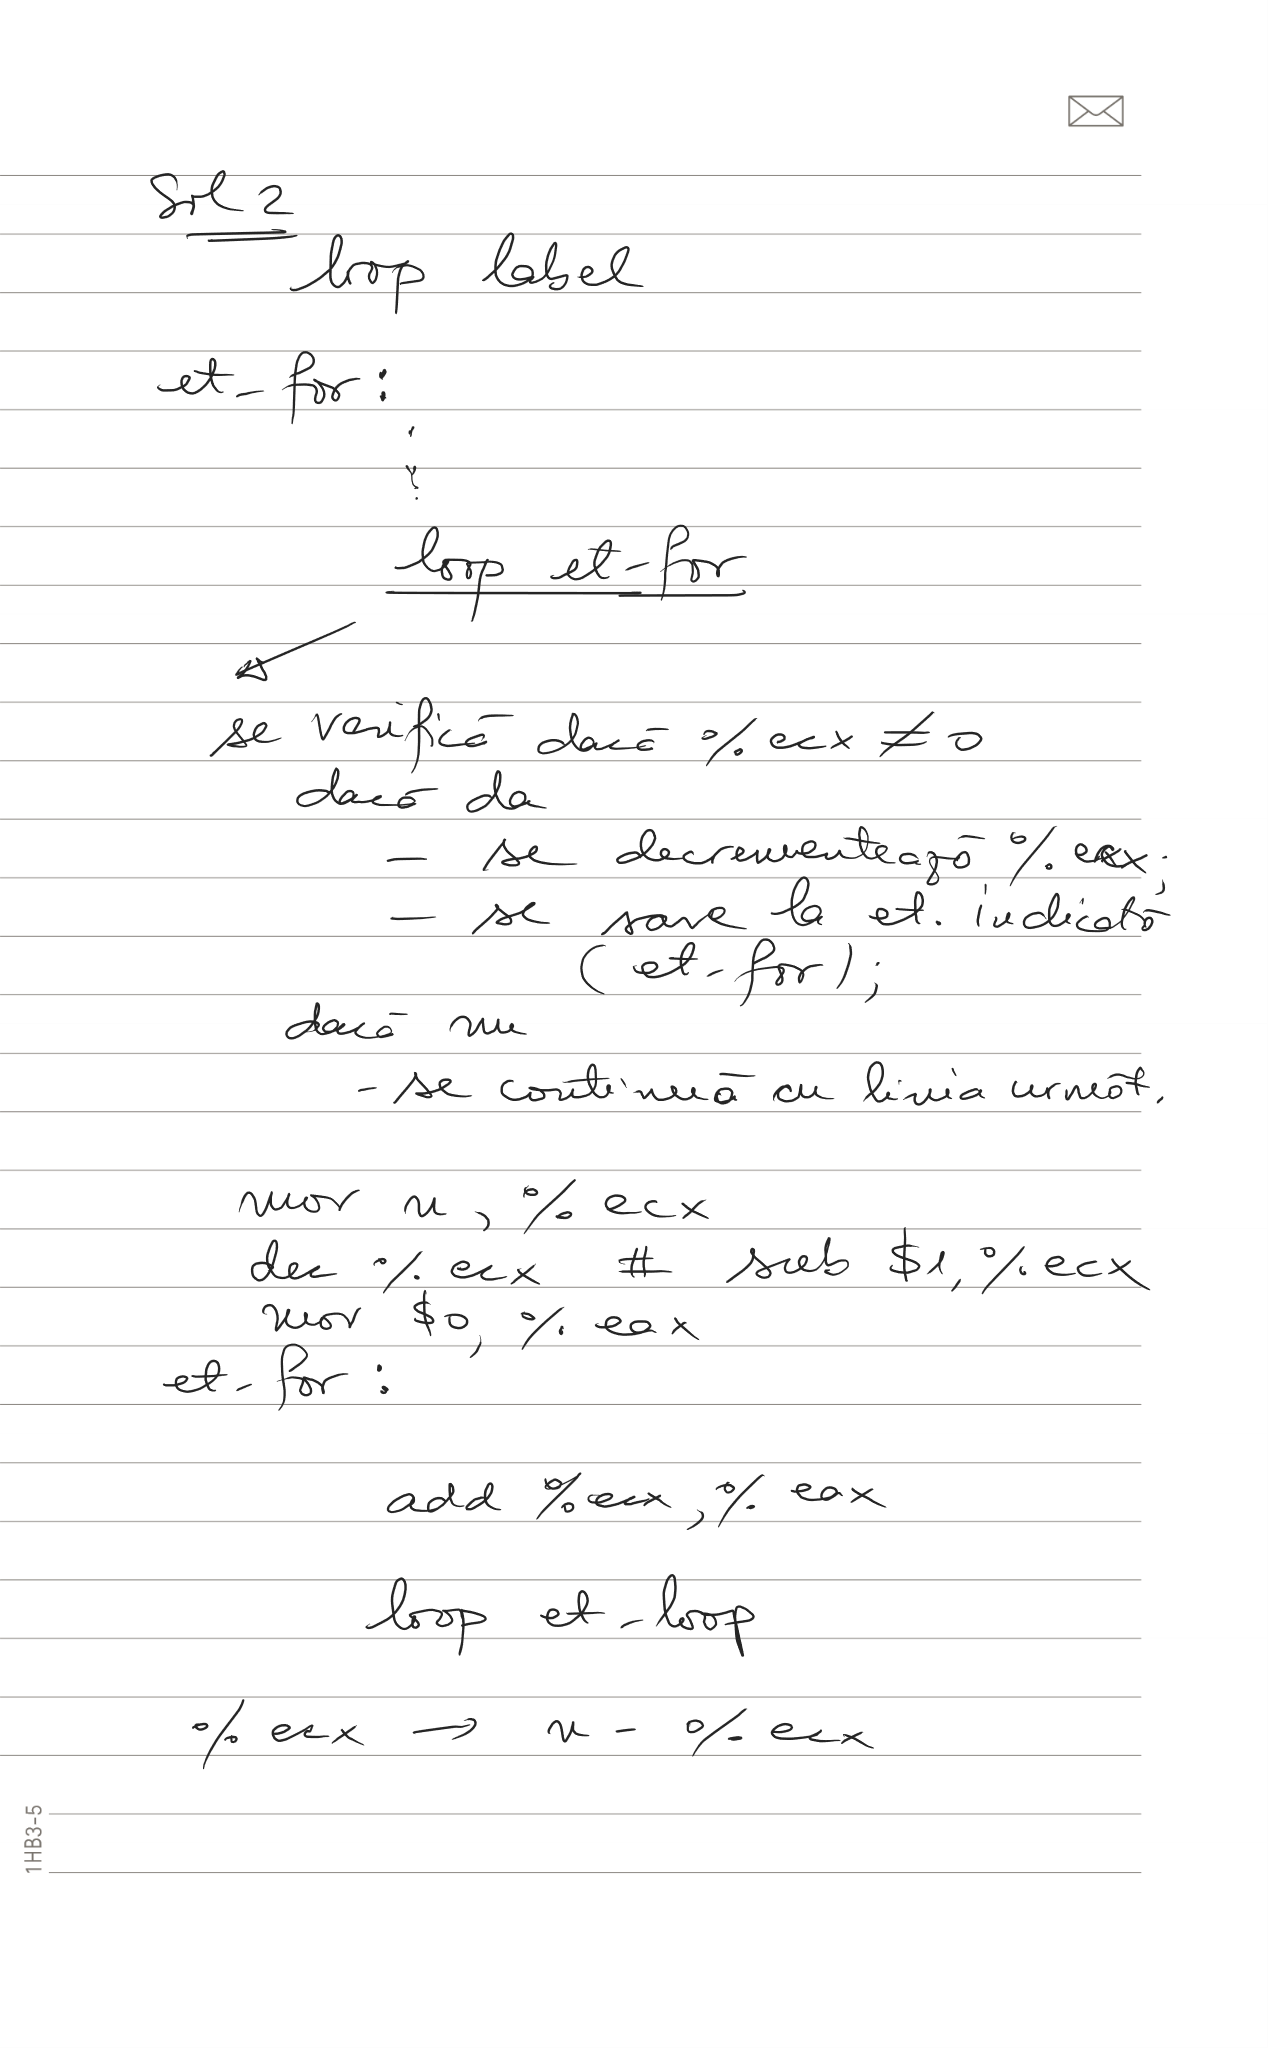 Sol 2
loop label
et-for:
loop et-for
se verifică dacă %ecx ≠ 0
dacă da
- se decrementează %ecx;
- se sare la et. indicată
(et-for);
dacă nu
- se continuă cu linia următ.
mov n, %ecx
dec %ecx # sub $1, %ecx
mov $0, %eax
et-for:
add %ecx, %eax
loop et-loop
%ecx → n - %ecx
1HB3-5